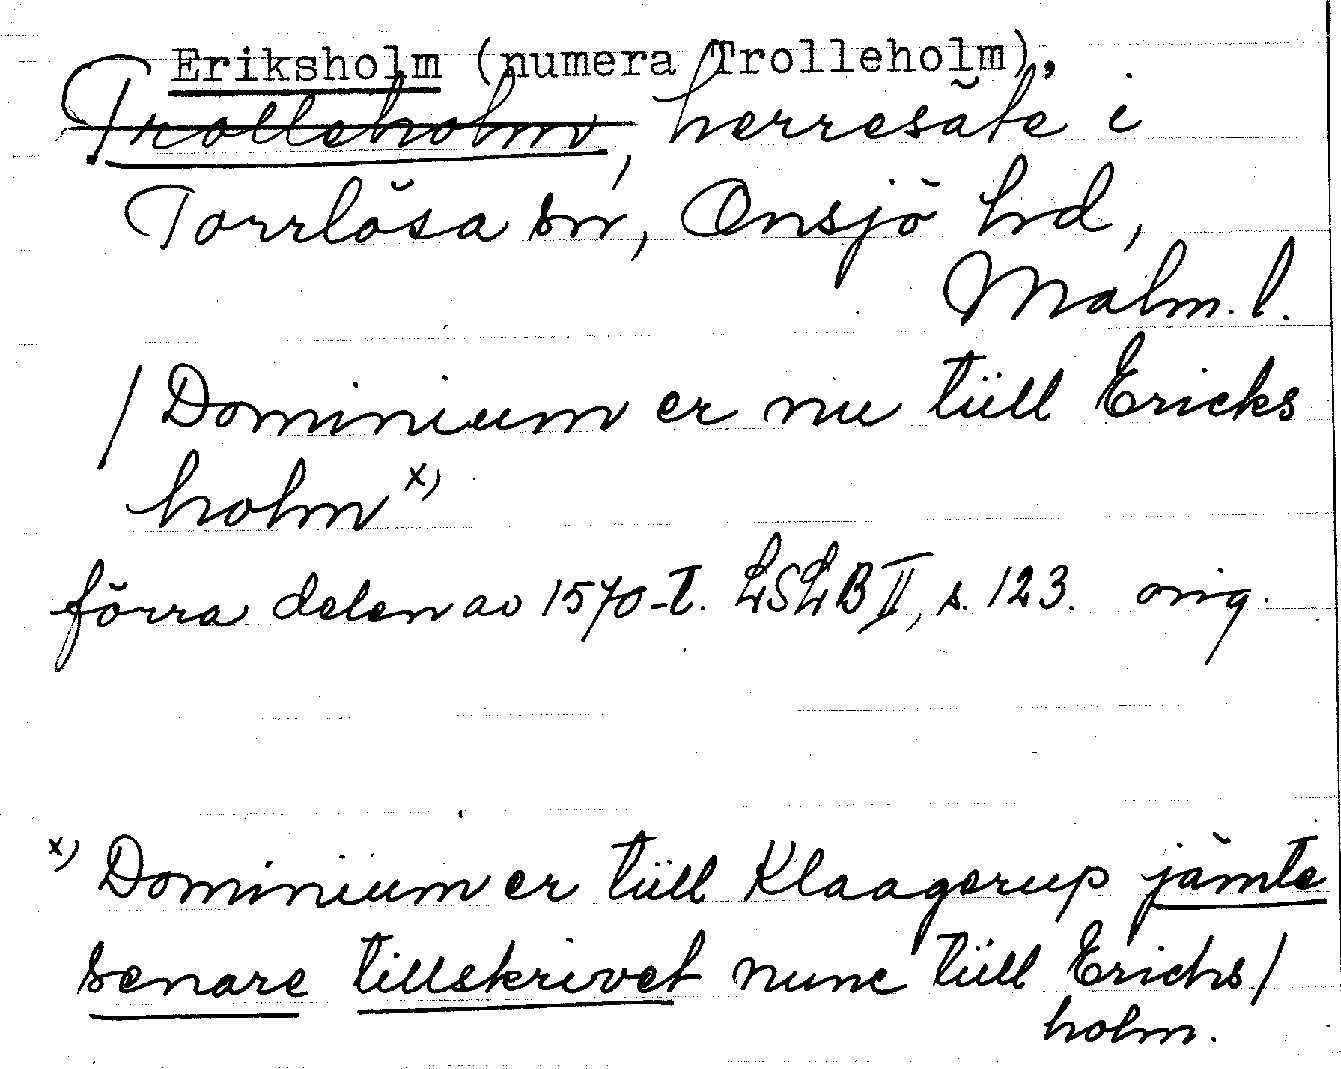 Eriksholm (numera Trolleholm),
Trolleholm, herresäte i
Torrlösa sn, Onsjö hd,
Malm. l.
/ Dominium er nu tüll Ericks
holm x)
förra delen av 1570-t. LSLB II, s. 123. orig.
x) Dominium er tüll Klaagerup jämte
senare tillskrivet nunc tüll Erichs/
holm.